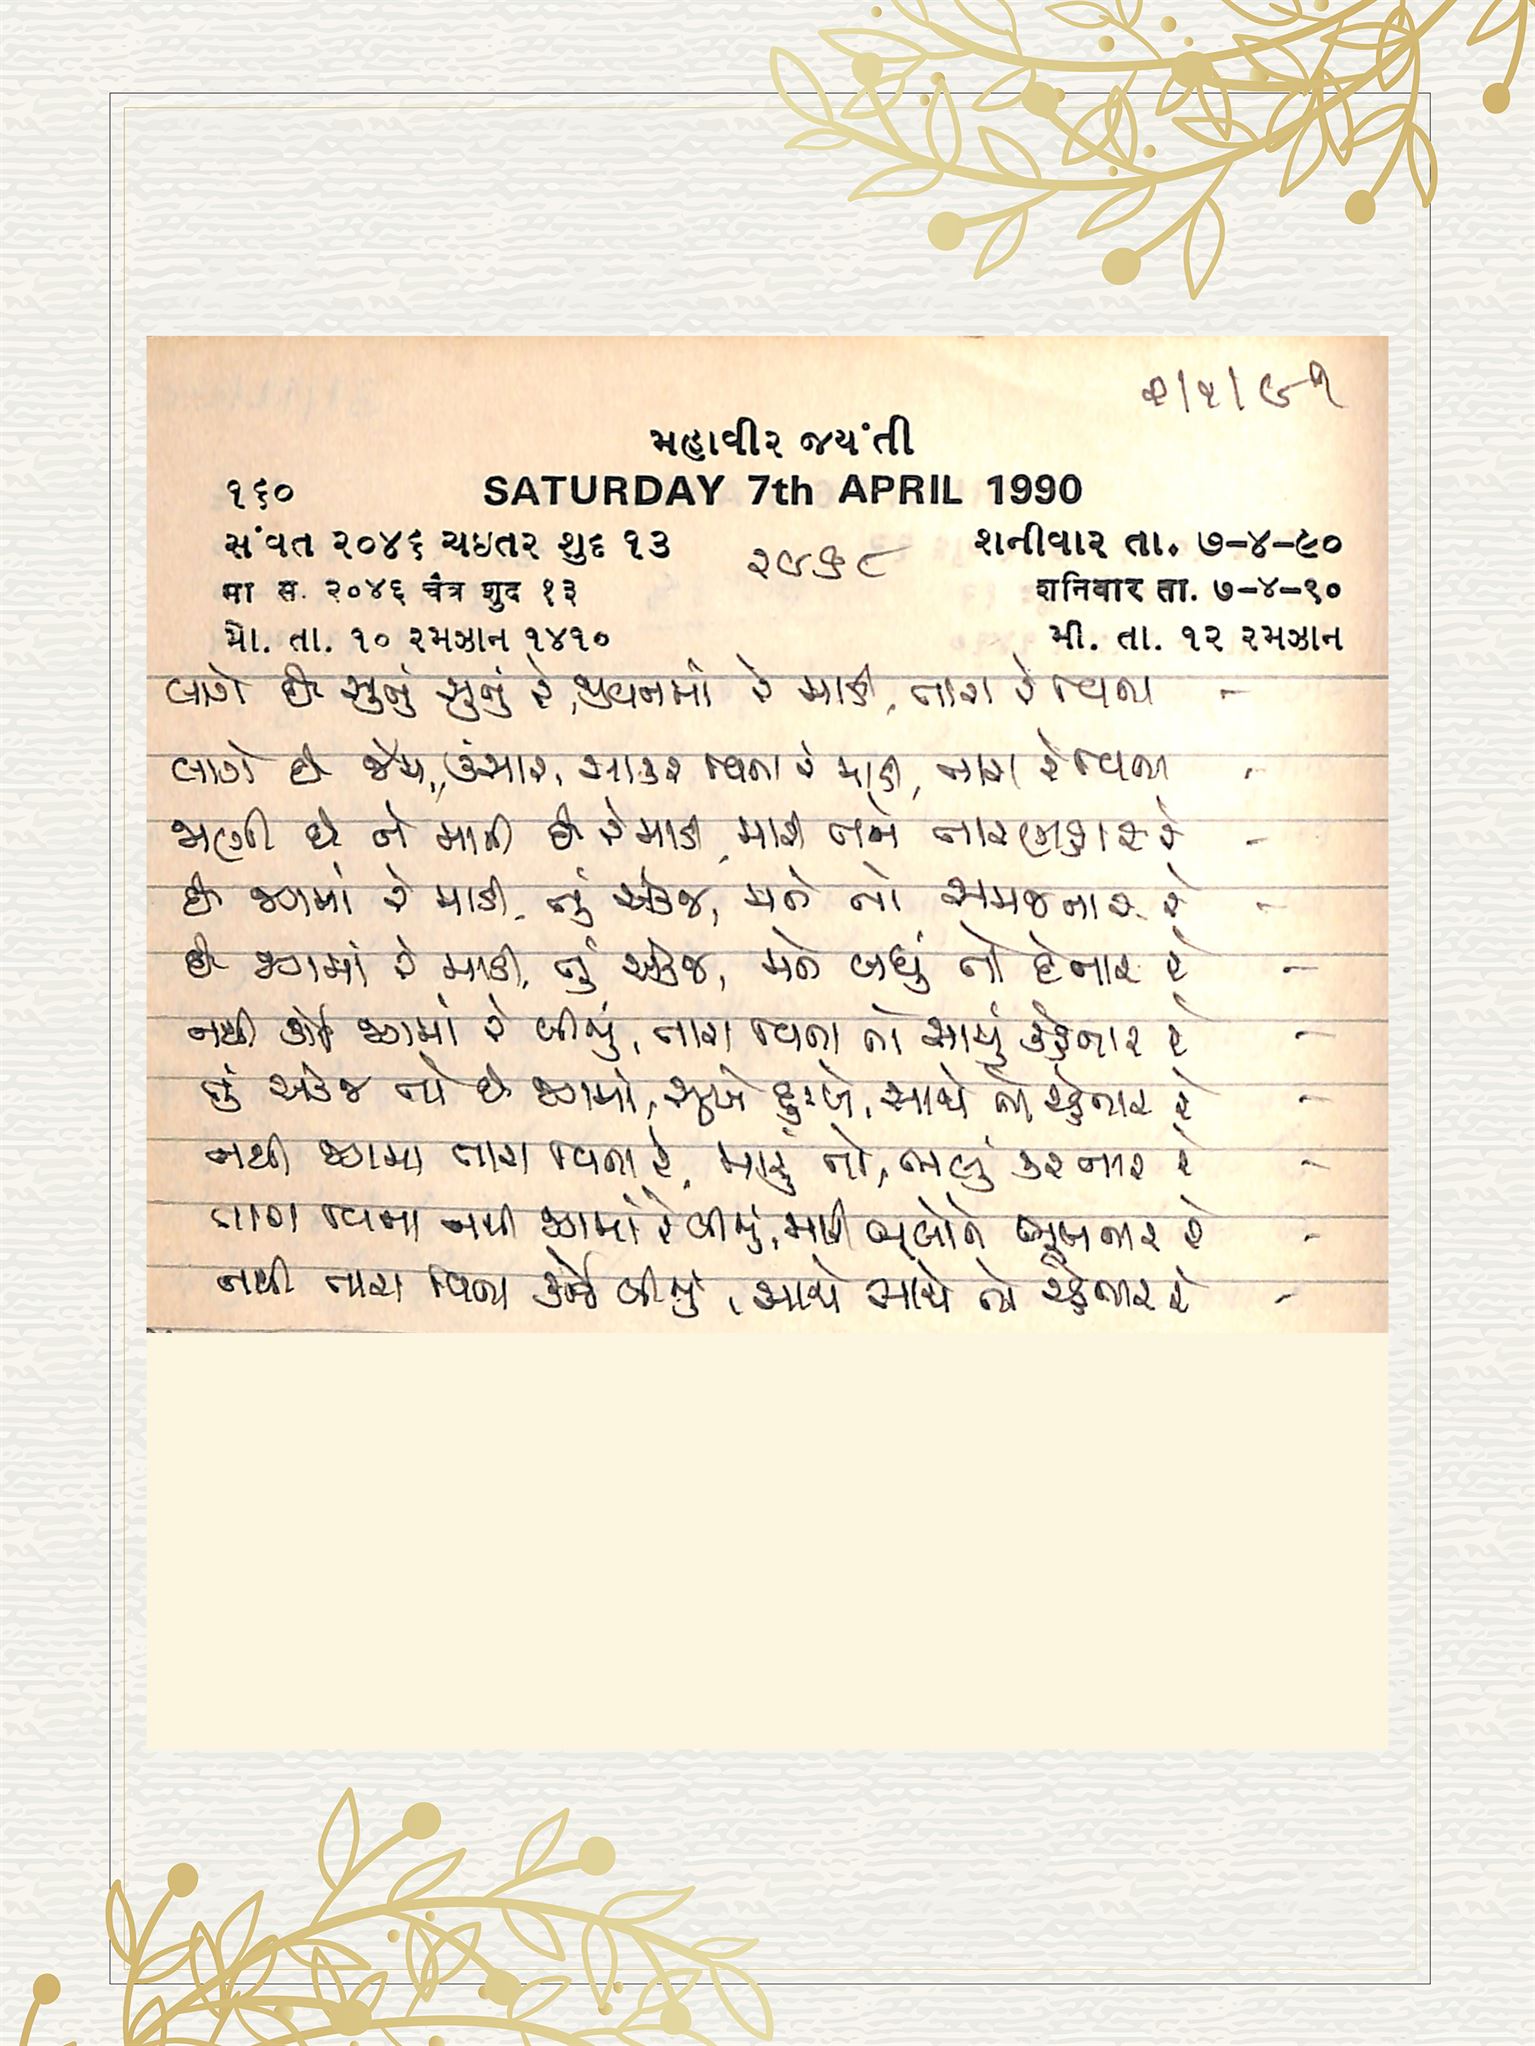 ૨/૧/૯૧
મહાવીર જયંતી
૧૬૦ SATURDAY 7th APRIL 1990
સંવત ૨૦૪૬ ચઇતર શુદ ૧૩ ૨૯૭૮ શનીવાર તા. ૭-૪-૯૦
मा स. २०४६ चैत्र शुद १३ शनिवार ता. ७-४-९०
પૈા. તા. ૧૦ રમઝાન ૧૪૧૦ મી. તા. ૧૨ રમઝાન
લાગે છે સુનું સુનું રે, જીવનમાં રે માડી, તારા રે વિના -
લાગે છે જેમ, કંસાર, સાકર વિના રે માડી, તારા રે વિના -
ભણી છે ને માની છે રે માડી, મારી તને તારણહાર રે -
છે જગમાં રે માડી, તું એકજ, મને તો સમજનાર રે -
છે જગમાં રે માડી, તું એકજ, મને બધું તો દેનાર રે -
નથી કોઈ જગમાં રે બીજું, તારા વિના તો સાચું કહેનાર રે -
તું એકજ તો છે જગમાં, સુખે દુઃખે, સાથે તો રહેનાર રે -
નથી જગમાં તારા વિના રે, મારું તો, ભલું કરનાર રે -
તારા વિના નથી જગમાં રે બીજું, મારી ભૂલોને ભૂલનાર રે -
નથી તારા વિના કોઈ બીજું, સાથે સાથે તો રહેનાર રે -